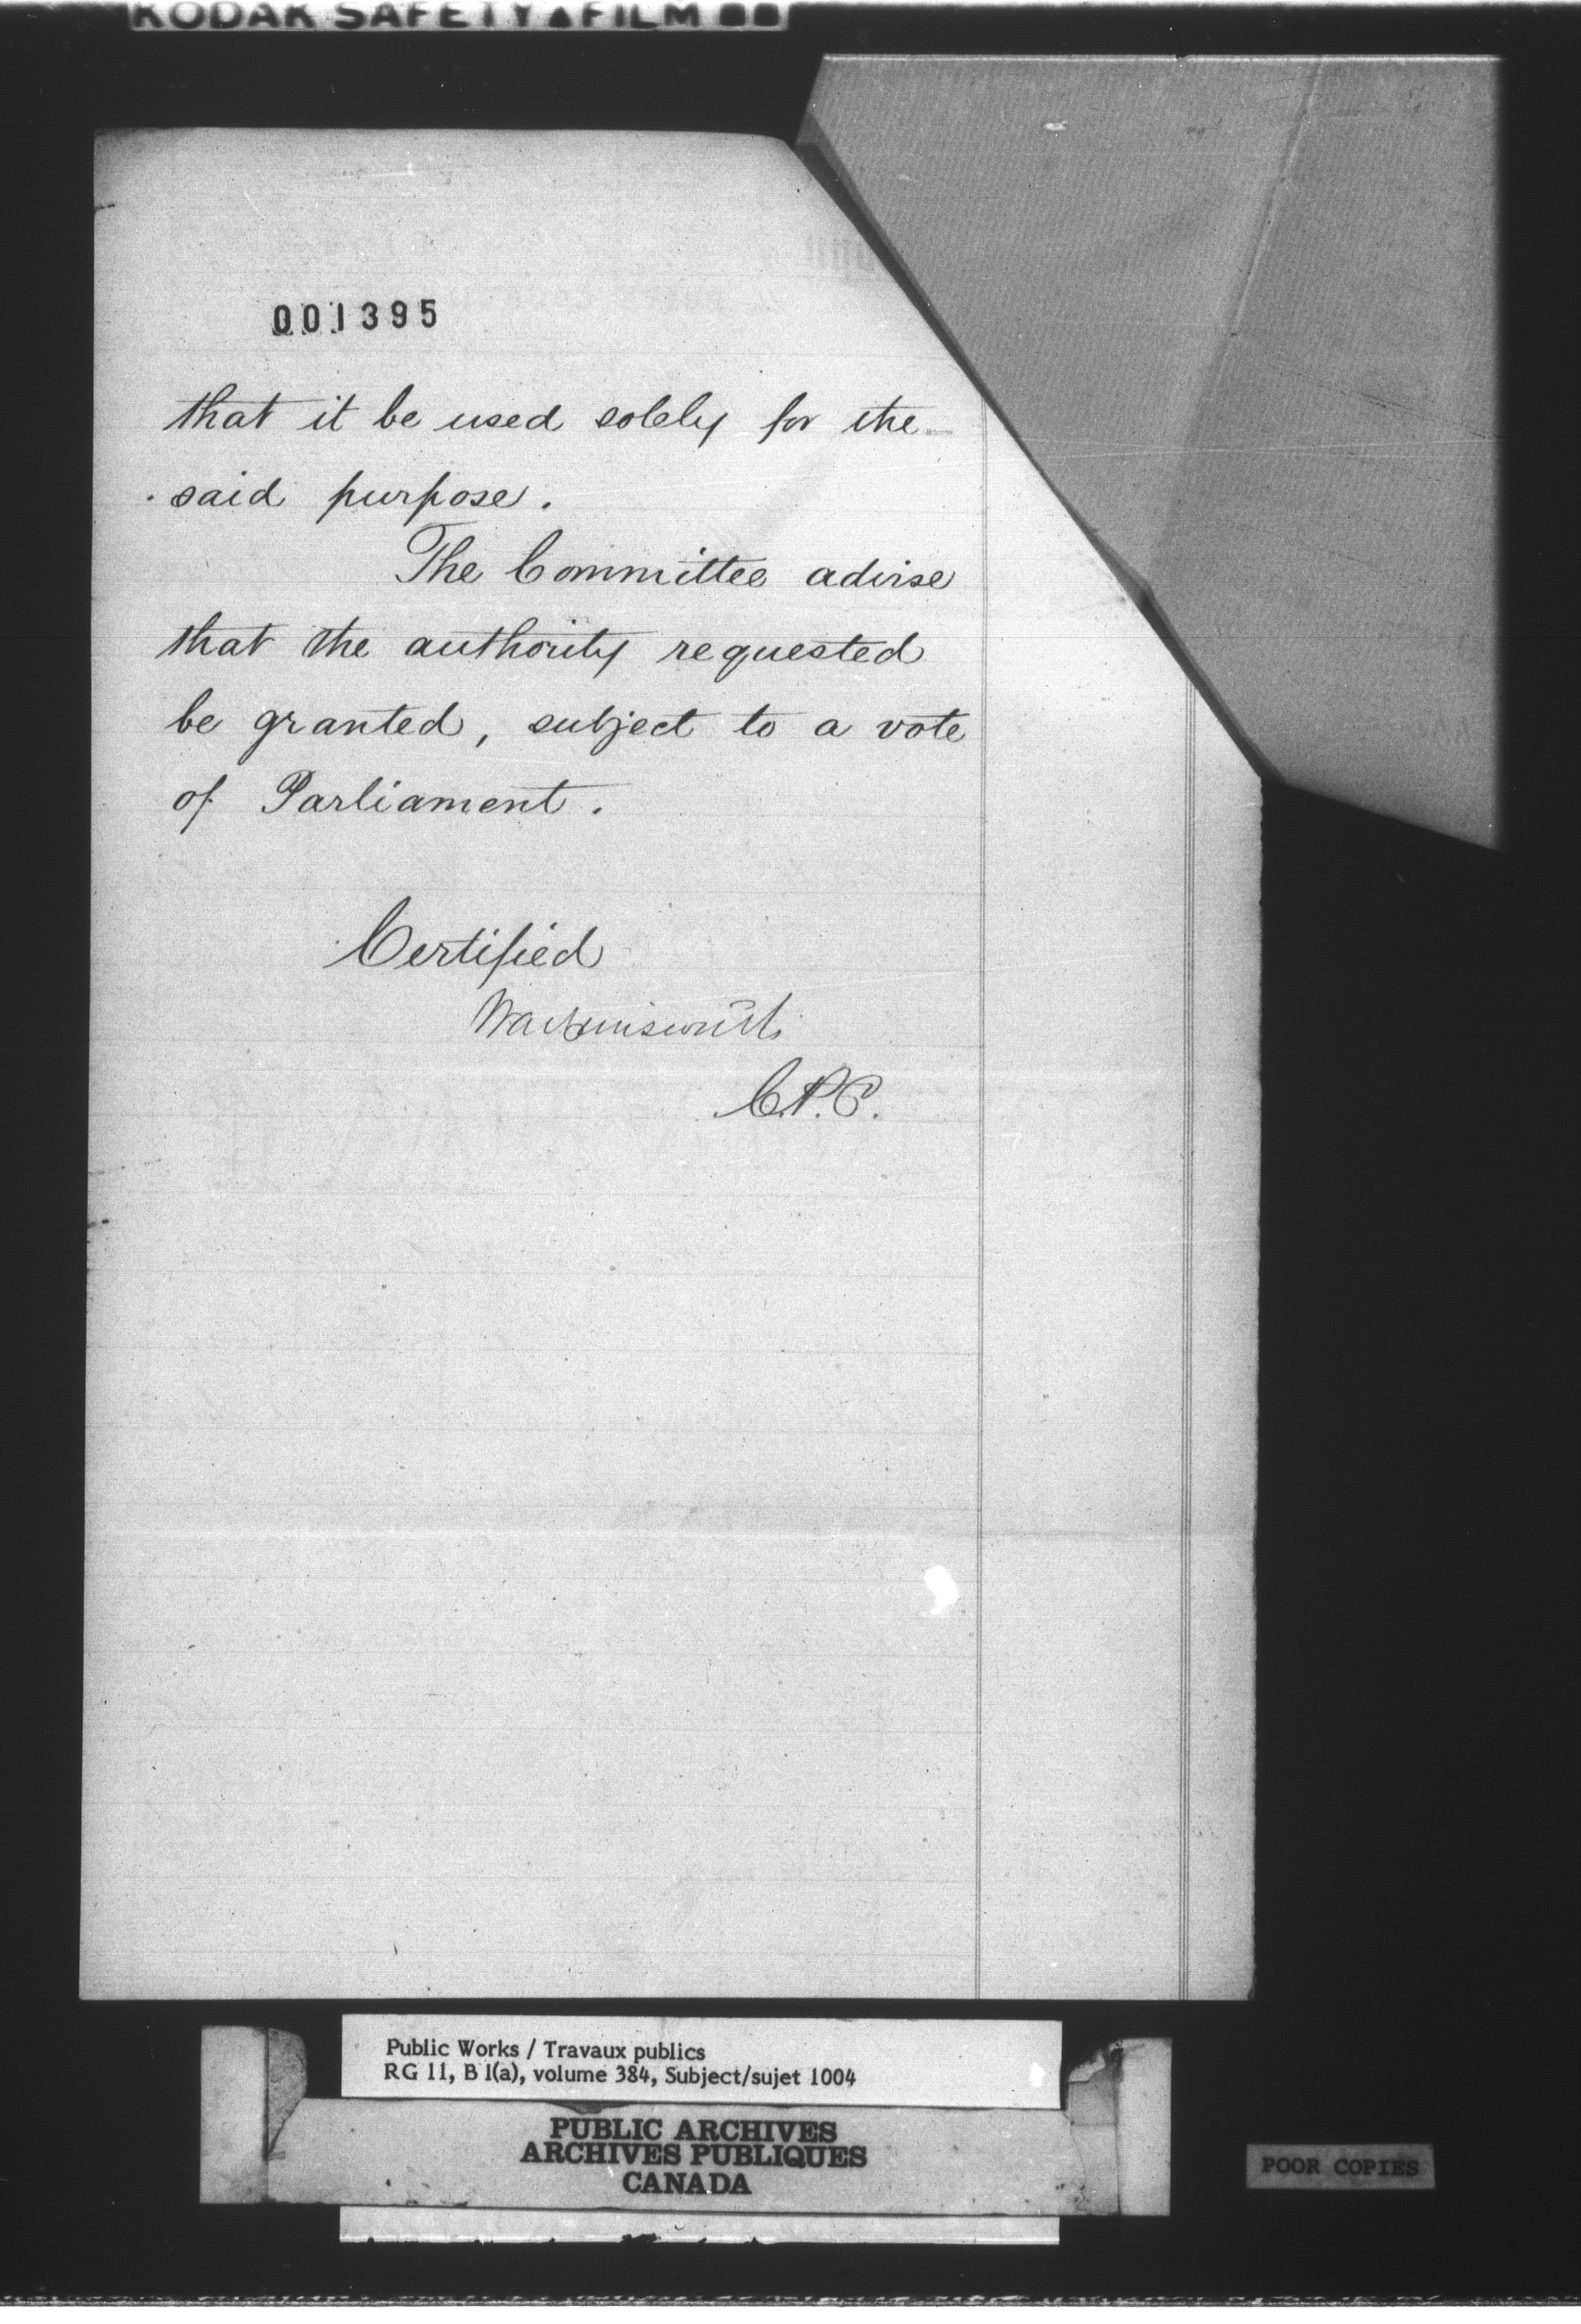 KODAK SAFETY FILM
001395
that it be used solely for the
said purpose.
The Committee advise
that the authority requested
be granted, subject to a vote
of Parliament.
Certified
C.P.C.
Public Works / Travaux publics
RG 11, B 1(a), volume 384, Subject/sujet 1004
PUBLIC ARCHIVES
ARCHIVES PUBLIQUES
CANADA
POOR COPIES